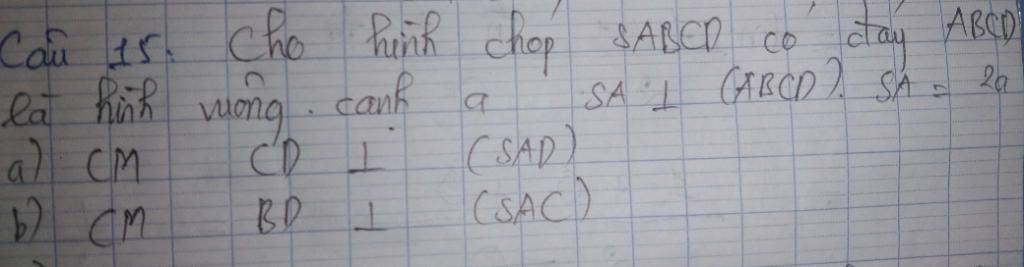 Câu 15: Cho hình chóp SABCD có đáy ABCD
là hình vuông. cạnh a SA ⊥ (ABCD). SA = 2a
a) CM CD ⊥ (SAD)
b) CM BD ⊥ (SAC)